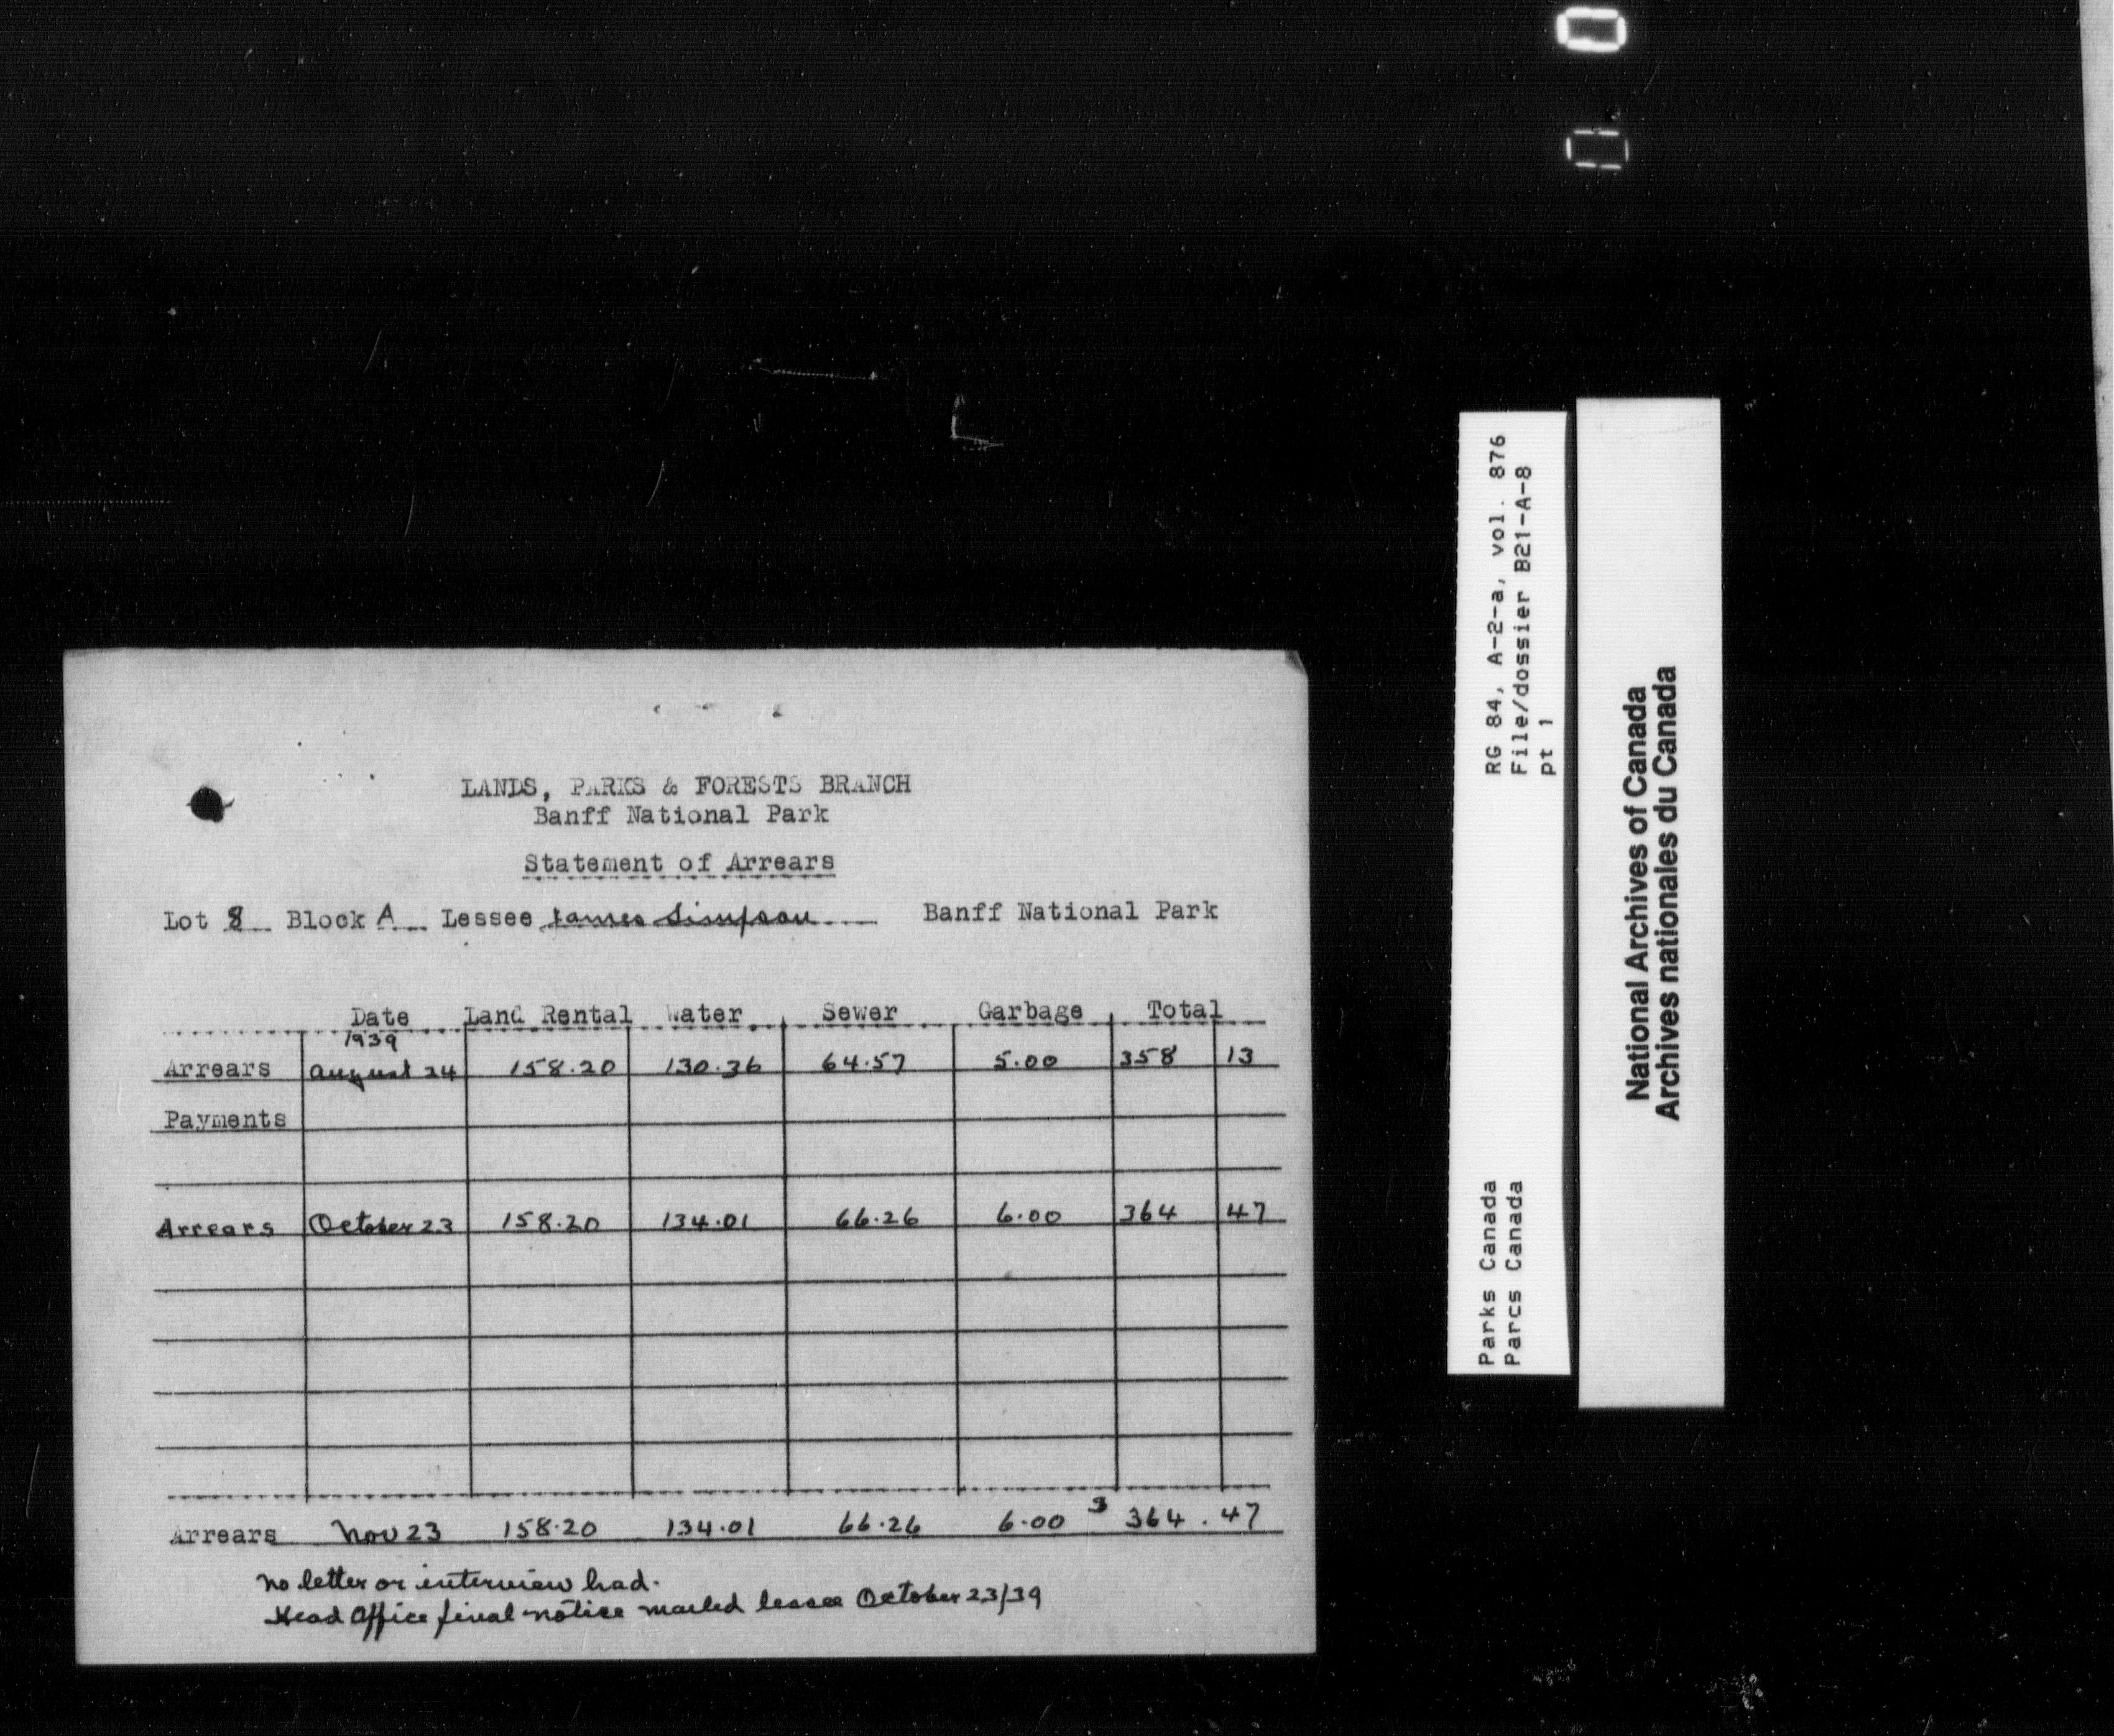 LANDS, PARKS & FORESTS BRANCH
Banff National Park
Statement of Arrears
Lot 8 Block A Lessee James Simpson Banff National Park
Date Land Rental Water Sewer Garbage Total
1939
Arrears August 24 158.20 130.36 64.57 5.00 358 13
Payments
Arrears October 23 158.20 134.01 66.26 6.00 364 47
Arrears Nov 23 158.20 134.01 66.26 6.00 3 364.47
No letter or interview had.
Head Office final notice mailed lessee October 23/39
RG 84, A-2-a, vol. 876
File/dossier B21-A-8
pt 1
Parks Canada
Parcs Canada
National Archives of Canada
Archives nationales du Canada